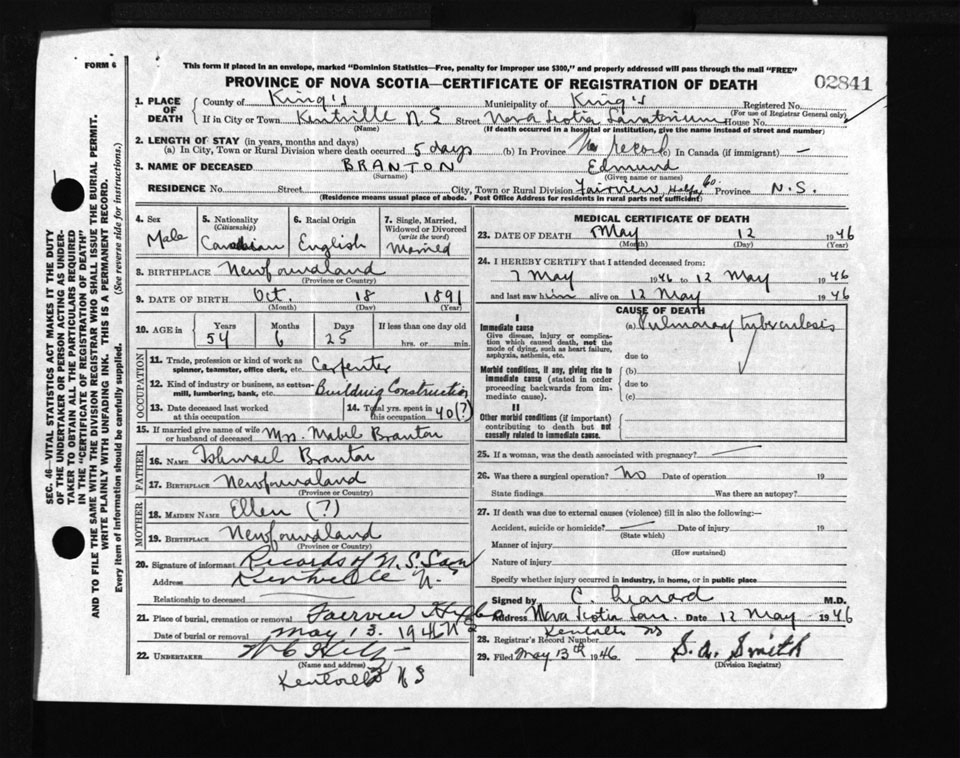 FORM 6
This form if placed in an envelope, marked "Dominion Statistics—Free, penalty for improper use $300," and properly addressed will pass through the mail "FREE"
PROVINCE OF NOVA SCOTIA—CERTIFICATE OF REGISTRATION OF DEATH
02841
1. PLACE OF DEATH
County of King's Municipality of King's Registered No.
(For use of Registrar General only)
If in City or Town Kentville N.S Street Nova Scotia Sanatorium House No.
(Name) (If death occurred in a hospital or institution, give the name instead of street and number)
2. LENGTH OF STAY (in years, months and days)
(a) In City, Town or Rural Division where death occurred 5 days (b) In Province No record (c) In Canada (if immigrant) —
3. NAME OF DECEASED BRANTON Edmund
(Surname) (Given name or names)
RESIDENCE No. Street City, Town or Rural Division Fairview, Halifax Co. Province N.S.
(Residence means usual place of abode. Post Office Address for residents in rural parts not sufficient)
4. Sex
Male
5. Nationality
(Citizenship)
Canadian
6. Racial Origin
English
7. Single, Married, Widowed or Divorced
(write the word)
Married
8. BIRTHPLACE Newfoundland
(Province or Country)
9. DATE OF BIRTH Oct. 18 1891
(Month) (Day) (Year)
10. AGE in
Years Months Days If less than one day old
54 6 25 hrs. or min.
OCCUPATION
11. Trade, profession or kind of work as spinner, teamster, office clerk, etc. Carpenter
12. Kind of industry or business, as cotton-mill, lumbering, bank, etc. Building Construction
13. Date deceased last worked at this occupation
14. Total yrs. spent in this occupation 40(?)
15. If married give name of wife or husband of deceased Mrs. Mabel Branton
FATHER
16. NAME Ishmael Branton
17. BIRTHPLACE Newfoundland
(Province or Country)
MOTHER
18. MAIDEN NAME Ellen (?)
19. BIRTHPLACE Newfoundland
(Province or Country)
20. Signature of informant Records of N.S. San
Address Kentville N.
Relationship to deceased
21. Place of burial, cremation or removal Fairview Hfx
Date of burial or removal May 13. 1946
22. UNDERTAKER
(Name and address)
Kentville N S
MEDICAL CERTIFICATE OF DEATH
23. DATE OF DEATH May 12 1946
(Month) (Day) (Year)
24. I HEREBY CERTIFY that I attended deceased from:
7 May 1946 to 12 May 1946
and last saw him alive on 12 May 1946
CAUSE OF DEATH
I
Immediate cause
Give disease, injury or complication which caused death, not the mode of dying, such as heart failure, asphyxia, asthenia, etc.
(a) Pulmonary tuberculosis
due to
Morbid conditions, if any, giving rise to immediate cause (stated in order proceeding backwards from immediate cause).
(b)
due to
(c)
II
Other morbid conditions (if important) contributing to death but not causally related to immediate cause.
25. If a woman, was the death associated with pregnancy?
26. Was there a surgical operation? No Date of operation 19
State findings Was there an autopsy?
27. If death was due to external causes (violence) fill in also the following:—
Accident, suicide or homicide? Date of injury 19
(State which)
Manner of injury
(How sustained)
Nature of injury
Specify whether injury occurred in industry, in home, or in public place
Signed by M.D.
Address Nova Scotia San. Date 12 May 1946
Kentville NS
28. Registrar's Record Number
29. Filed May 13th 1946 S.A. Smith
(Division Registrar)
SEC. 46—VITAL STATISTICS ACT MAKES IT THE DUTY OF THE UNDERTAKER OR PERSON ACTING AS UNDERTAKER TO OBTAIN ALL THE PARTICULARS REQUIRED IN THE "CERTIFICATE OF REGISTRATION OF DEATH" AND TO FILE THE SAME WITH THE DIVISION REGISTRAR WHO SHALL ISSUE THE BURIAL PERMIT.
(See reverse side for instructions.)
WRITE PLAINLY WITH UNFADING INK. THIS IS A PERMANENT RECORD.
Every item of information should be carefully supplied.